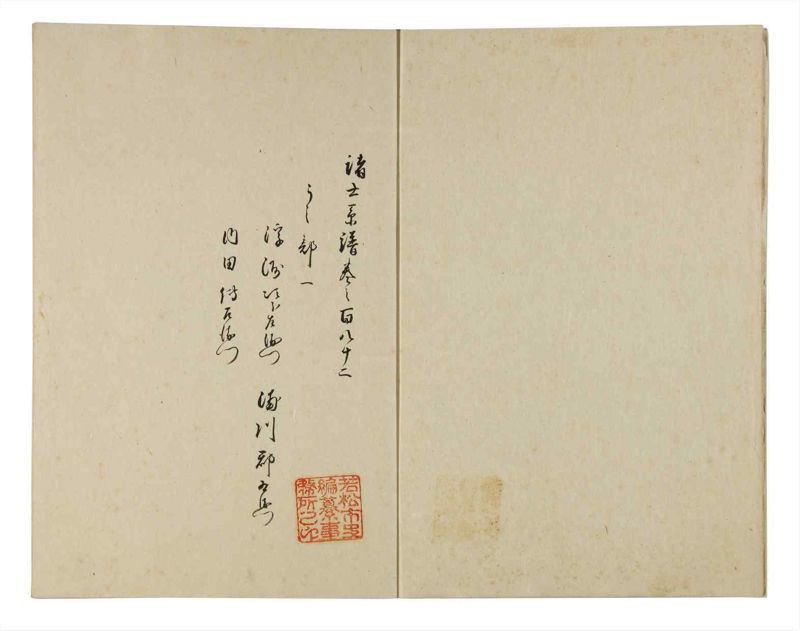 諸士系譜巻之百八十二
う之部 一
浮洲 左衛門
川 郡
内田 傳右衛門
若松市史
編纂事
務所之印